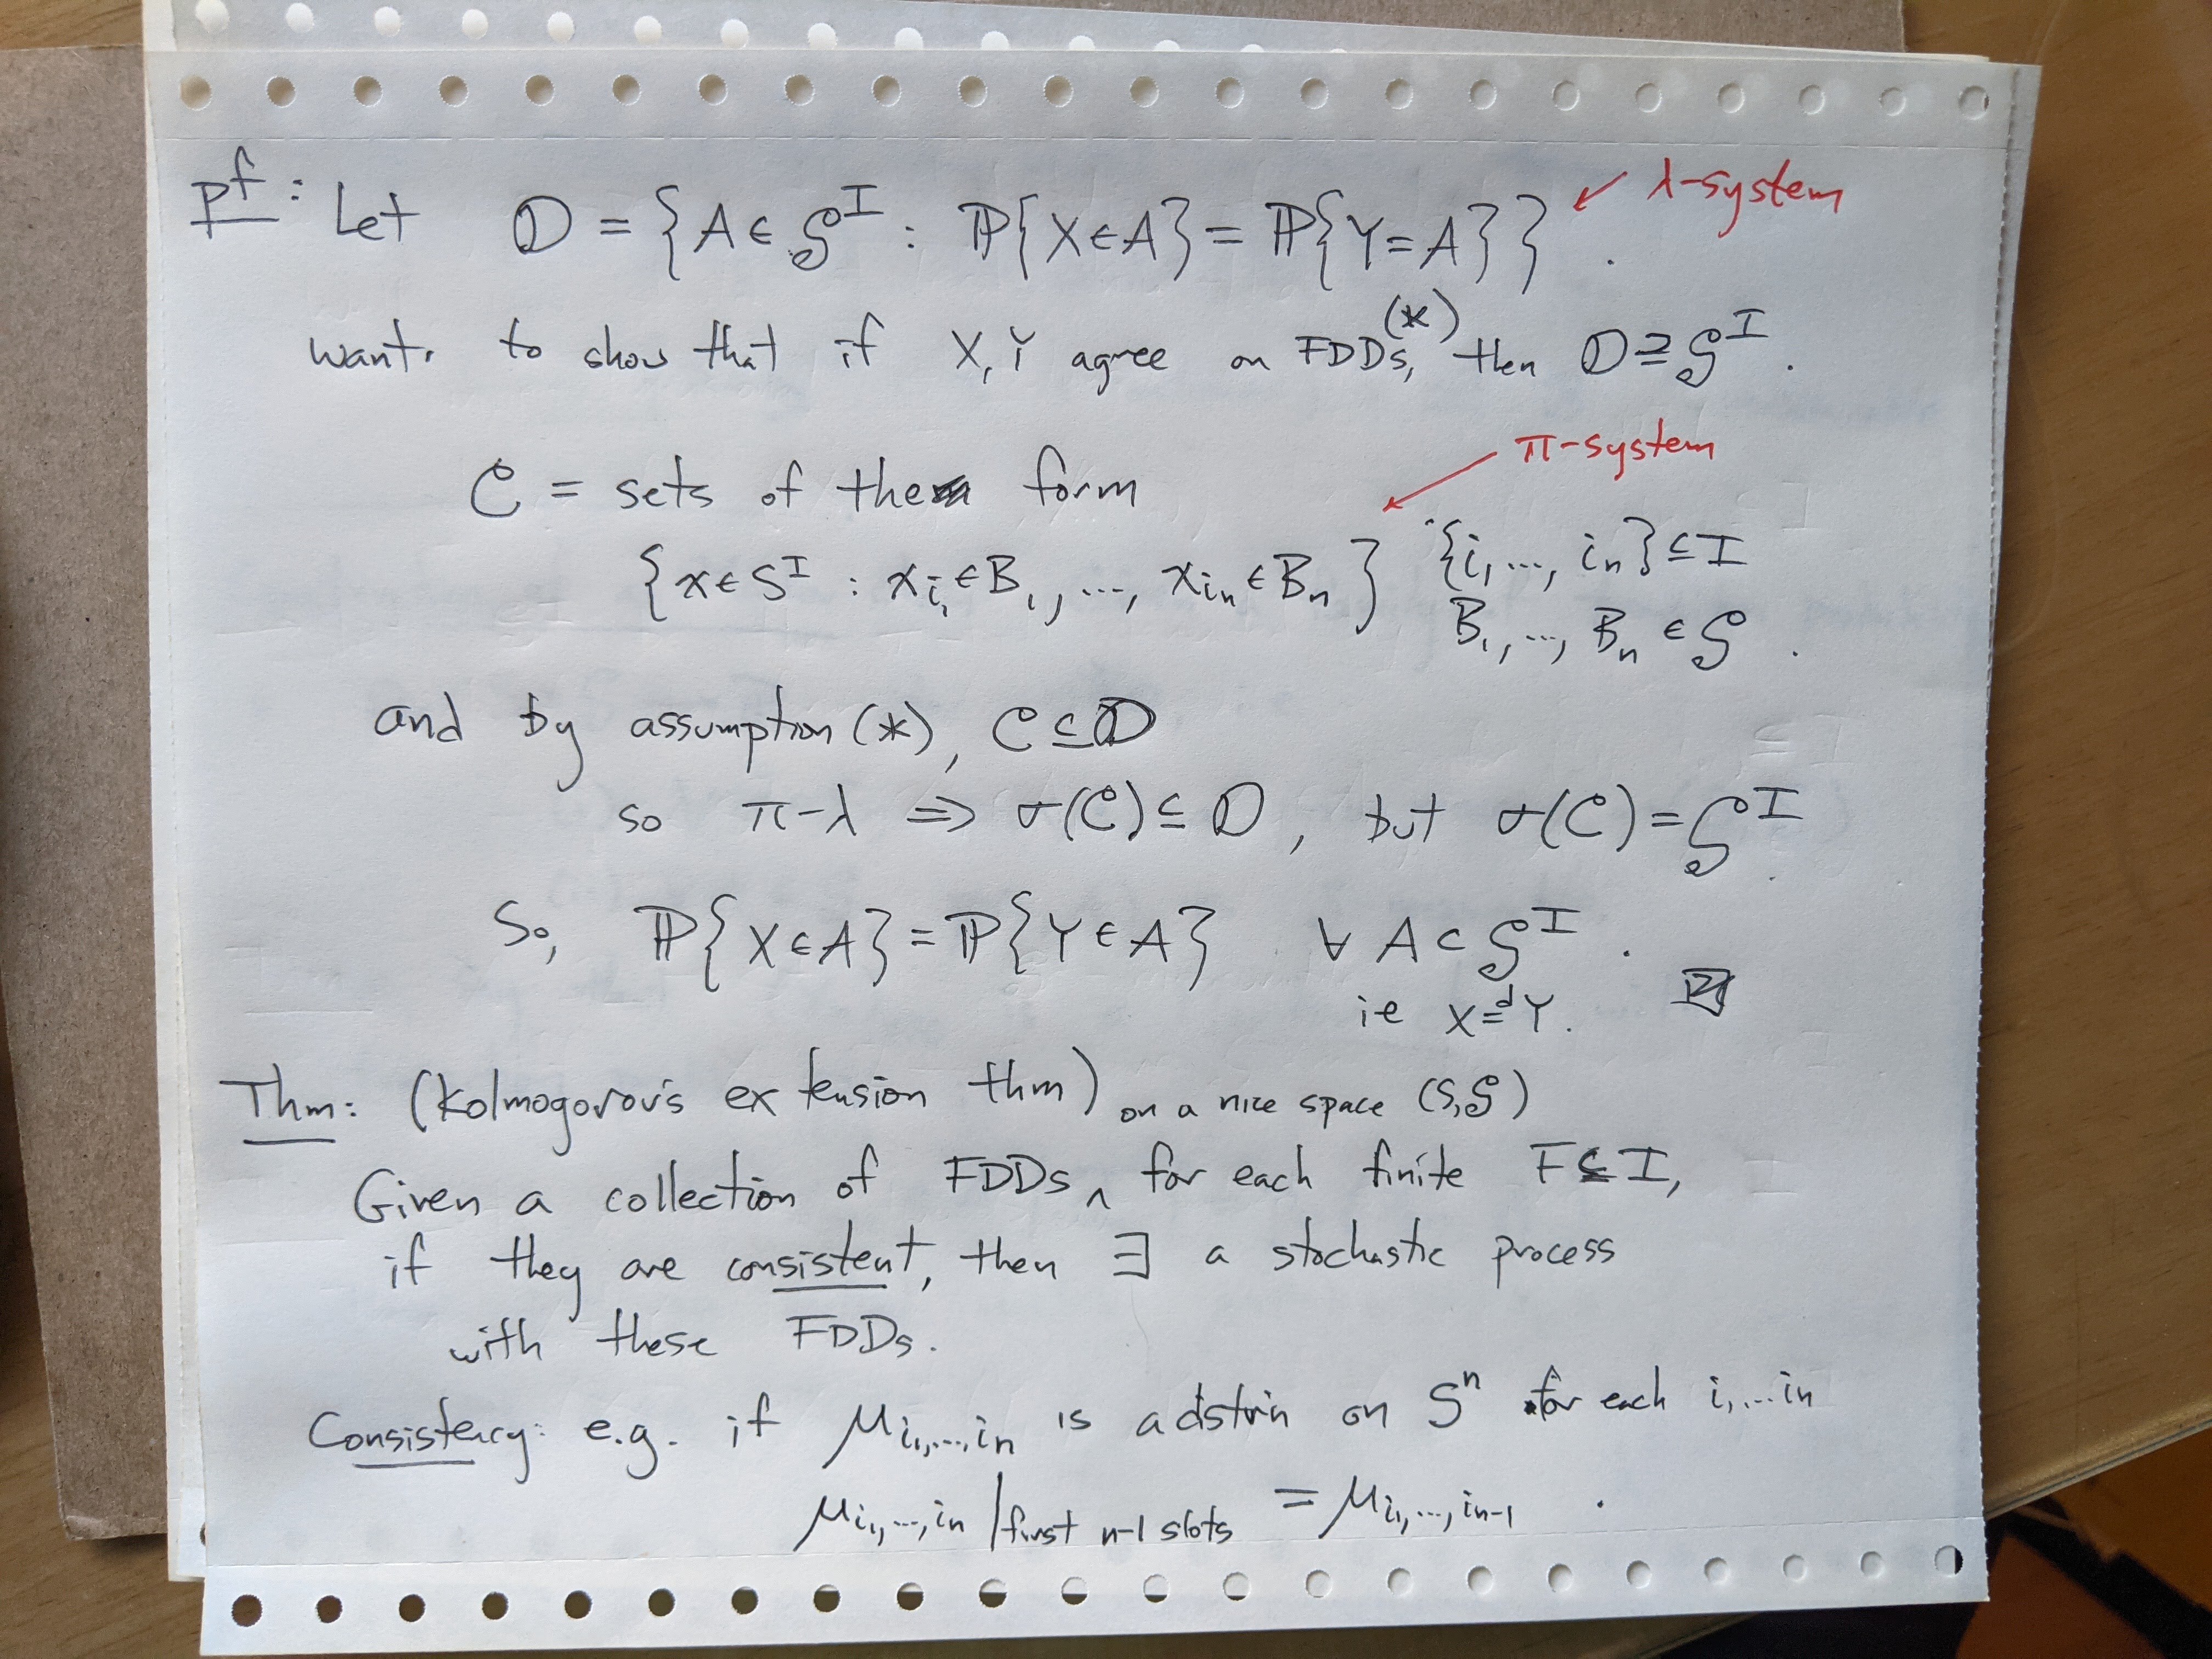 Pf: Let 𝒟 = {A ∈ 𝒮^I : ℙ{X ∈ A} = ℙ{Y = A}} . ↙ λ-system
want to show that if X, Y agree on FDDs,(*) then 𝒟 ⊇ 𝒮^I .
π-system
𝒞 = sets of the form
{x ∈ S^I : x_{i_1} ∈ B_1, ..., x_{i_n} ∈ B_n} {i_1, ..., i_n} ⊆ I
B_1, ..., B_n ∈ 𝒮 .
and by assumption (*), 𝒞 ⊆ 𝒟
so π-λ ⇒ σ(𝒞) ⊆ 𝒟, but σ(𝒞) = 𝒮^I .
So, ℙ{X ∈ A} = ℙ{Y ∈ A} ∀ A ⊂ 𝒮^I .
ie X =^d Y.
Thm: (Kolmogorov's extension thm) on a nice space (S,𝒮)
Given a collection of FDDs ^ for each finite F ⊆ I,
if they are consistent, then ∃ a stochastic process
with these FDDs.
Consistency: e.g. if μ_{i_1,...,i_n} is a distrin on S^n for each i_1...i_n
μ_{i_1,...,i_n} |_{first n-1 slots} = μ_{i_1,...,i_{n-1}} .